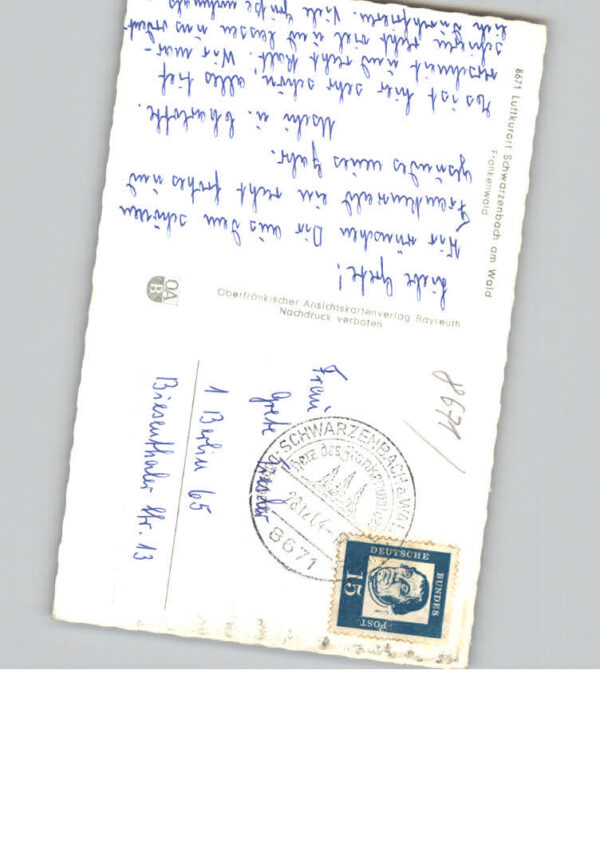 8671 Luftkurort Schwarzenbach am Wald
Frankenwald
Liebe Grete!
Wir wünschen Dir aus dem schönen
Frankenwald ein recht frohes und
gesundes neues Jahr.
Uschi u. Charlotte.
Es ist hier sehr schön, alles tief
verschneit und recht kalt. Wir
recht viel und lassen uns
Viele Grüße
OA
B
Oberfränkischer Ansichtskartenverlag Bayreuth
Nachdruck verboten
8671
Frau
Grete
1 Berlin 65
Biesenthaler Str. 13
SCHWARZENBACH a. WALD
Herz des Frankenwaldes
8671
DEUTSCHE
BUNDES
POST
15